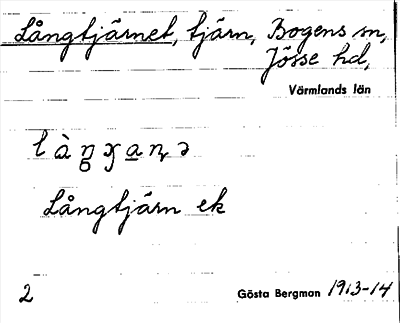 Långtjärnet, tjärn, Bogens sn,
Jösse hd,
Värmlands län
Långtjärn ek
2
Gösta Bergman 1913-14